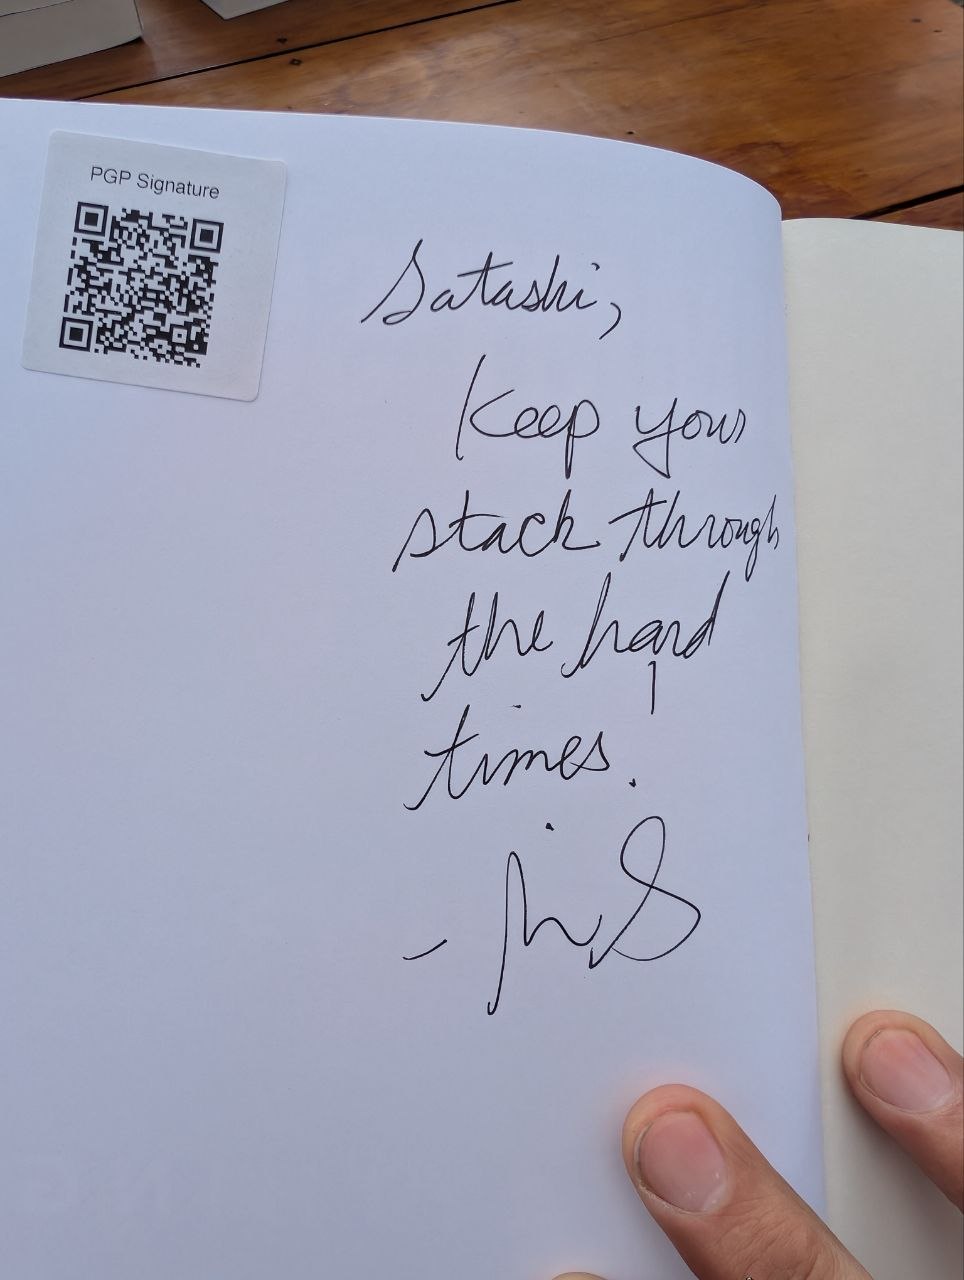 PGP Signature
Satashi,
Keep your
stack through
the hard
times.